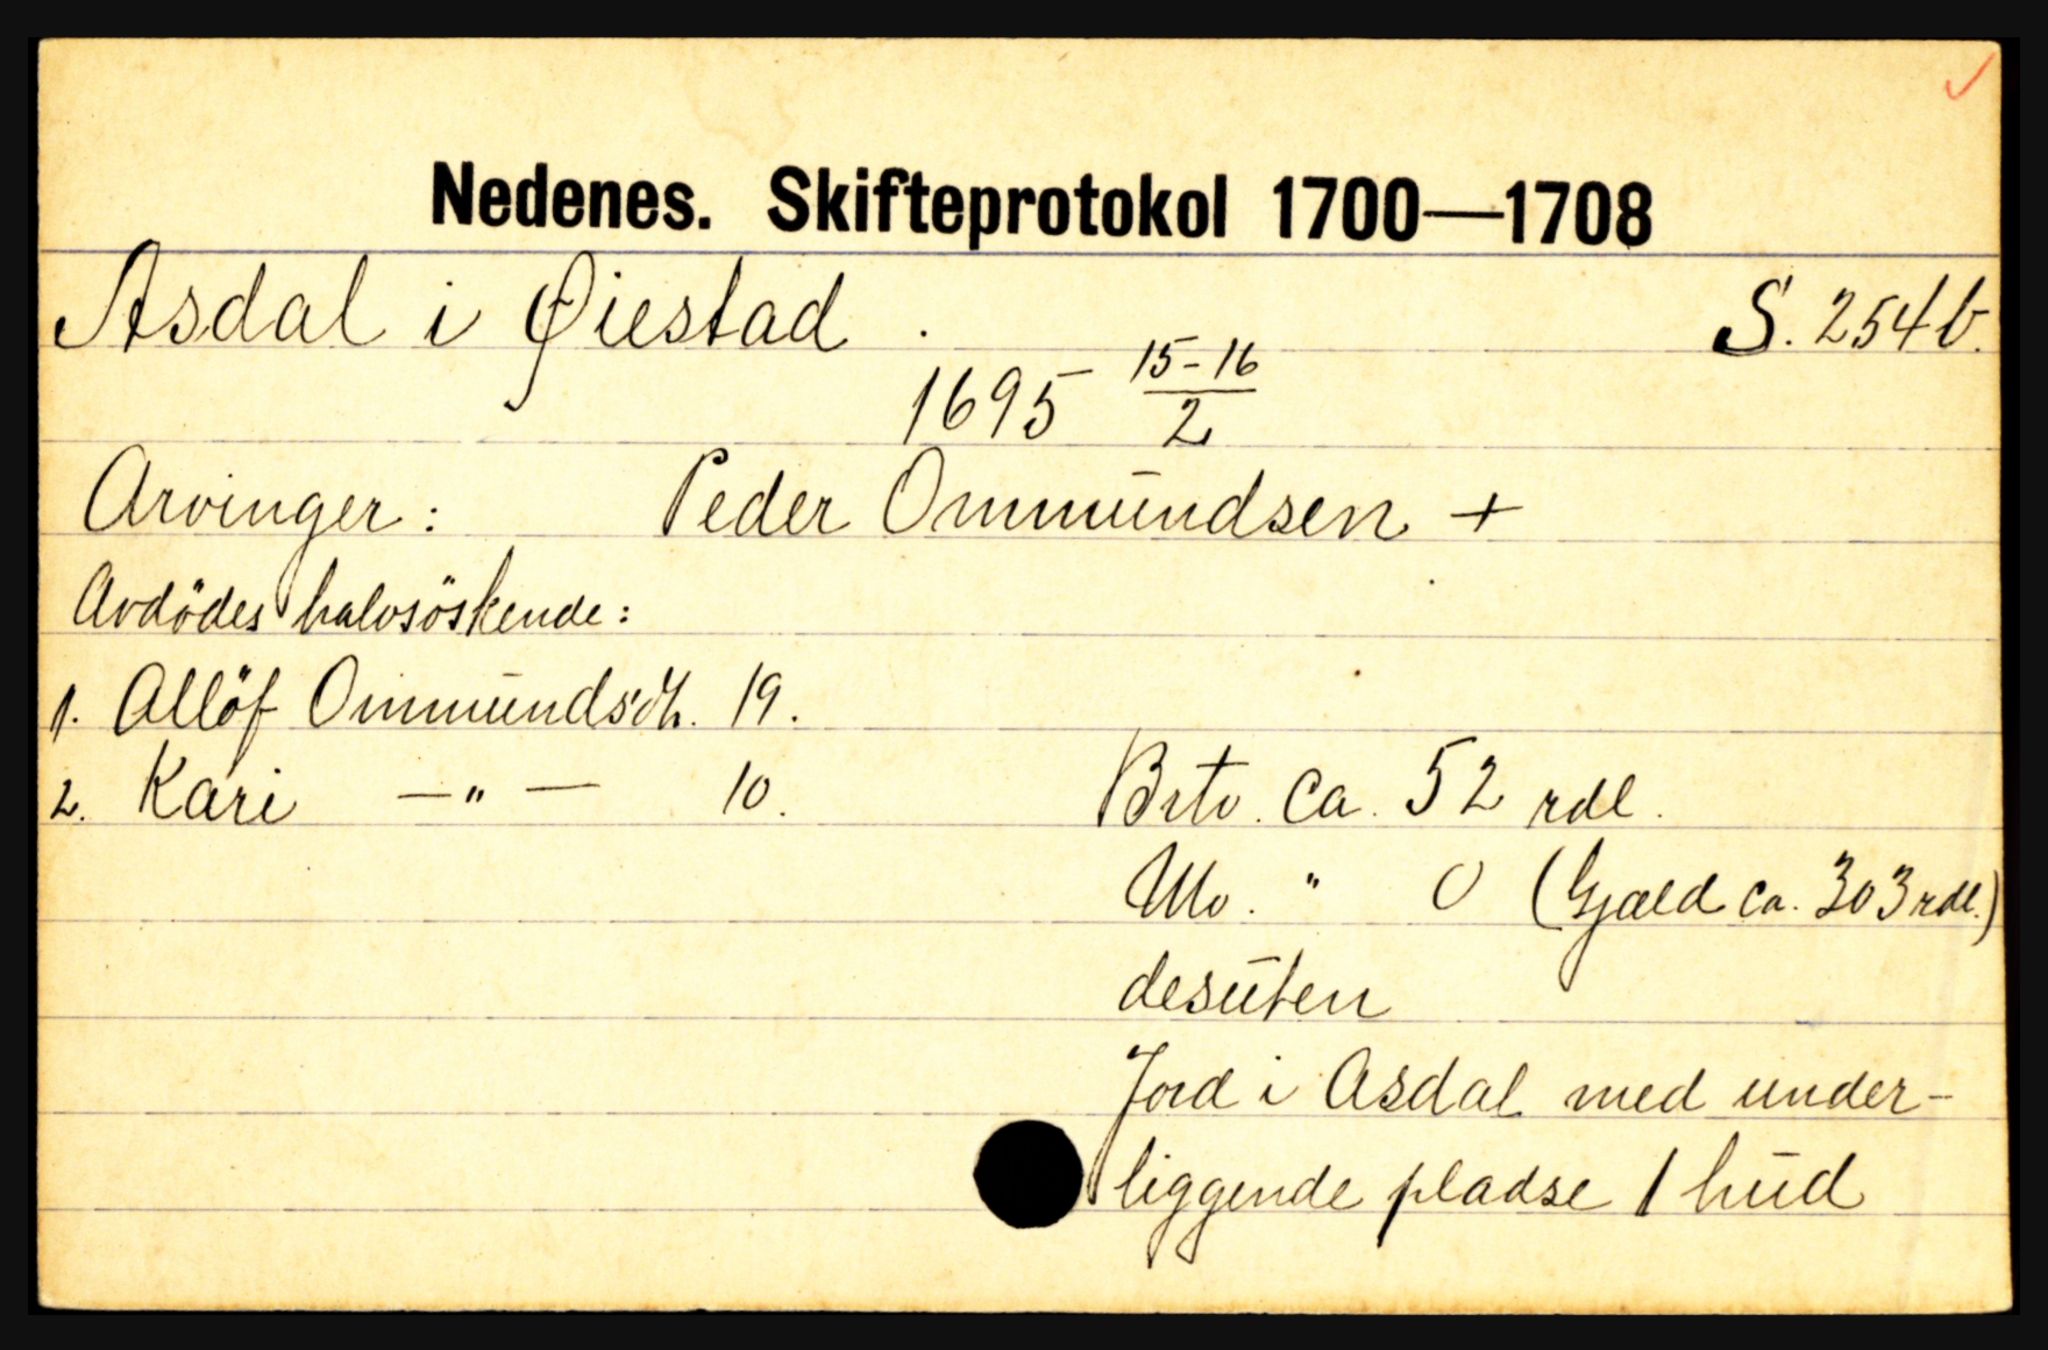 Nedenes. Skifteprotokol 1700—1708
Asdal i Øiestad. S. 254b.
1695 15-16/2
Arvinger: Peder Ommundsen +
Avdödes halvsöskende:
1. Allöf Ommundsdt. 19.
2. Kari —"— 10. Brtv. ca. 52 rdl.
" 0 (Gjæld ca. 303 rdl.)
desuten
Jord i Asdal med under-
liggende pladse 1 hud